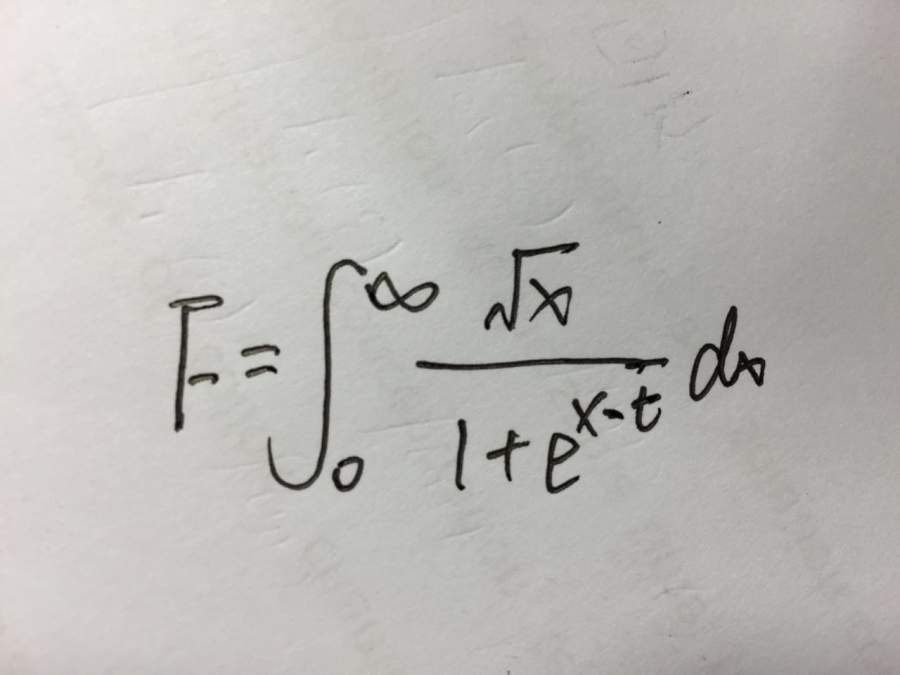 F = ∫₀^∞ √x / (1 + e^(x-t)) dx